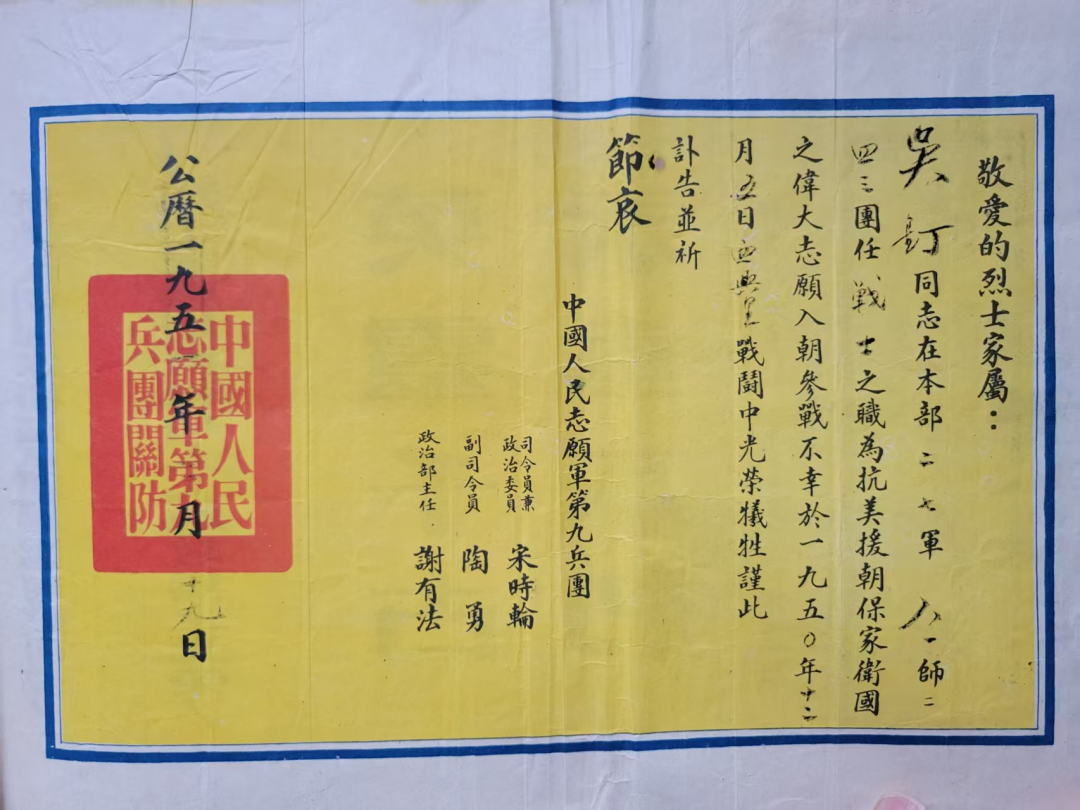 敬愛的烈士家屬：
吳釘同志在本部二七軍八一師二
四三團任戰士之職為抗美援朝保家衛國
之偉大志願入朝參戰不幸於一九五〇年十二
月五日 戰鬪中光榮犧牲謹此
訃告並祈
節哀
中國人民志願軍第九兵團
司令員兼
政治委員 宋時輪
副司令員 陶勇
政治部主任 謝有法
公曆一九五 年 月十九日
中國人民
志願軍第九
兵團關防